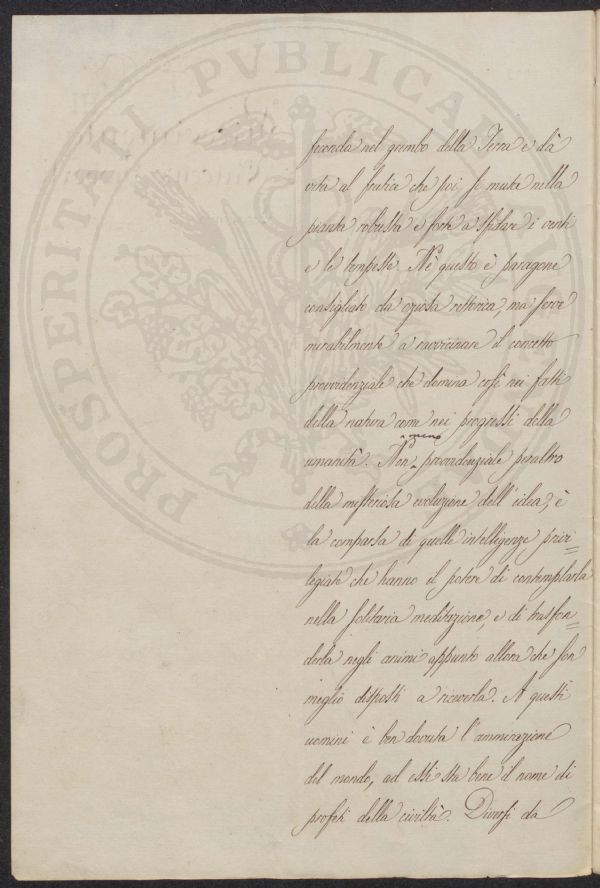 PROSPERITATI PVBLICAE
feconda nel grembo della Terra e dà
vita al frutice che poi si muta nella
pianta robusta e forte a sfidare i venti
e le tempeste. Nè questo è paragone
consigliato da oziosa rettorica, ma serve
mirabilmente a ravvicinare il concetto
provvidenziale che domina così nei fatti
della natura come nei progressi della
umanità. Non meno provvidenziale peraltro
della misteriosa evoluzione dell'idea, è
la comparsa di quelle intelligenze privi=
legiate che hanno il potere di contemplarla
nella solitaria meditazione, e di trasfon=
derla negli animi appunto allora che son
meglio disposti a riceverla. A questi
uomini è ben dovuta l'ammirazione
del mondo, ad essi sta bene il nome di
profeti della civiltà. Diversi da